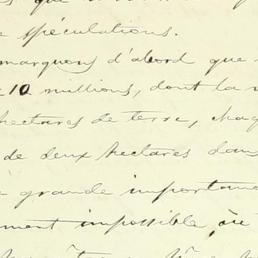 spéculations.
marquons d'abord que
10 millions, dont la
hectares de terre, chaq
de deux hectares dans
grande importance
ment impossible, où